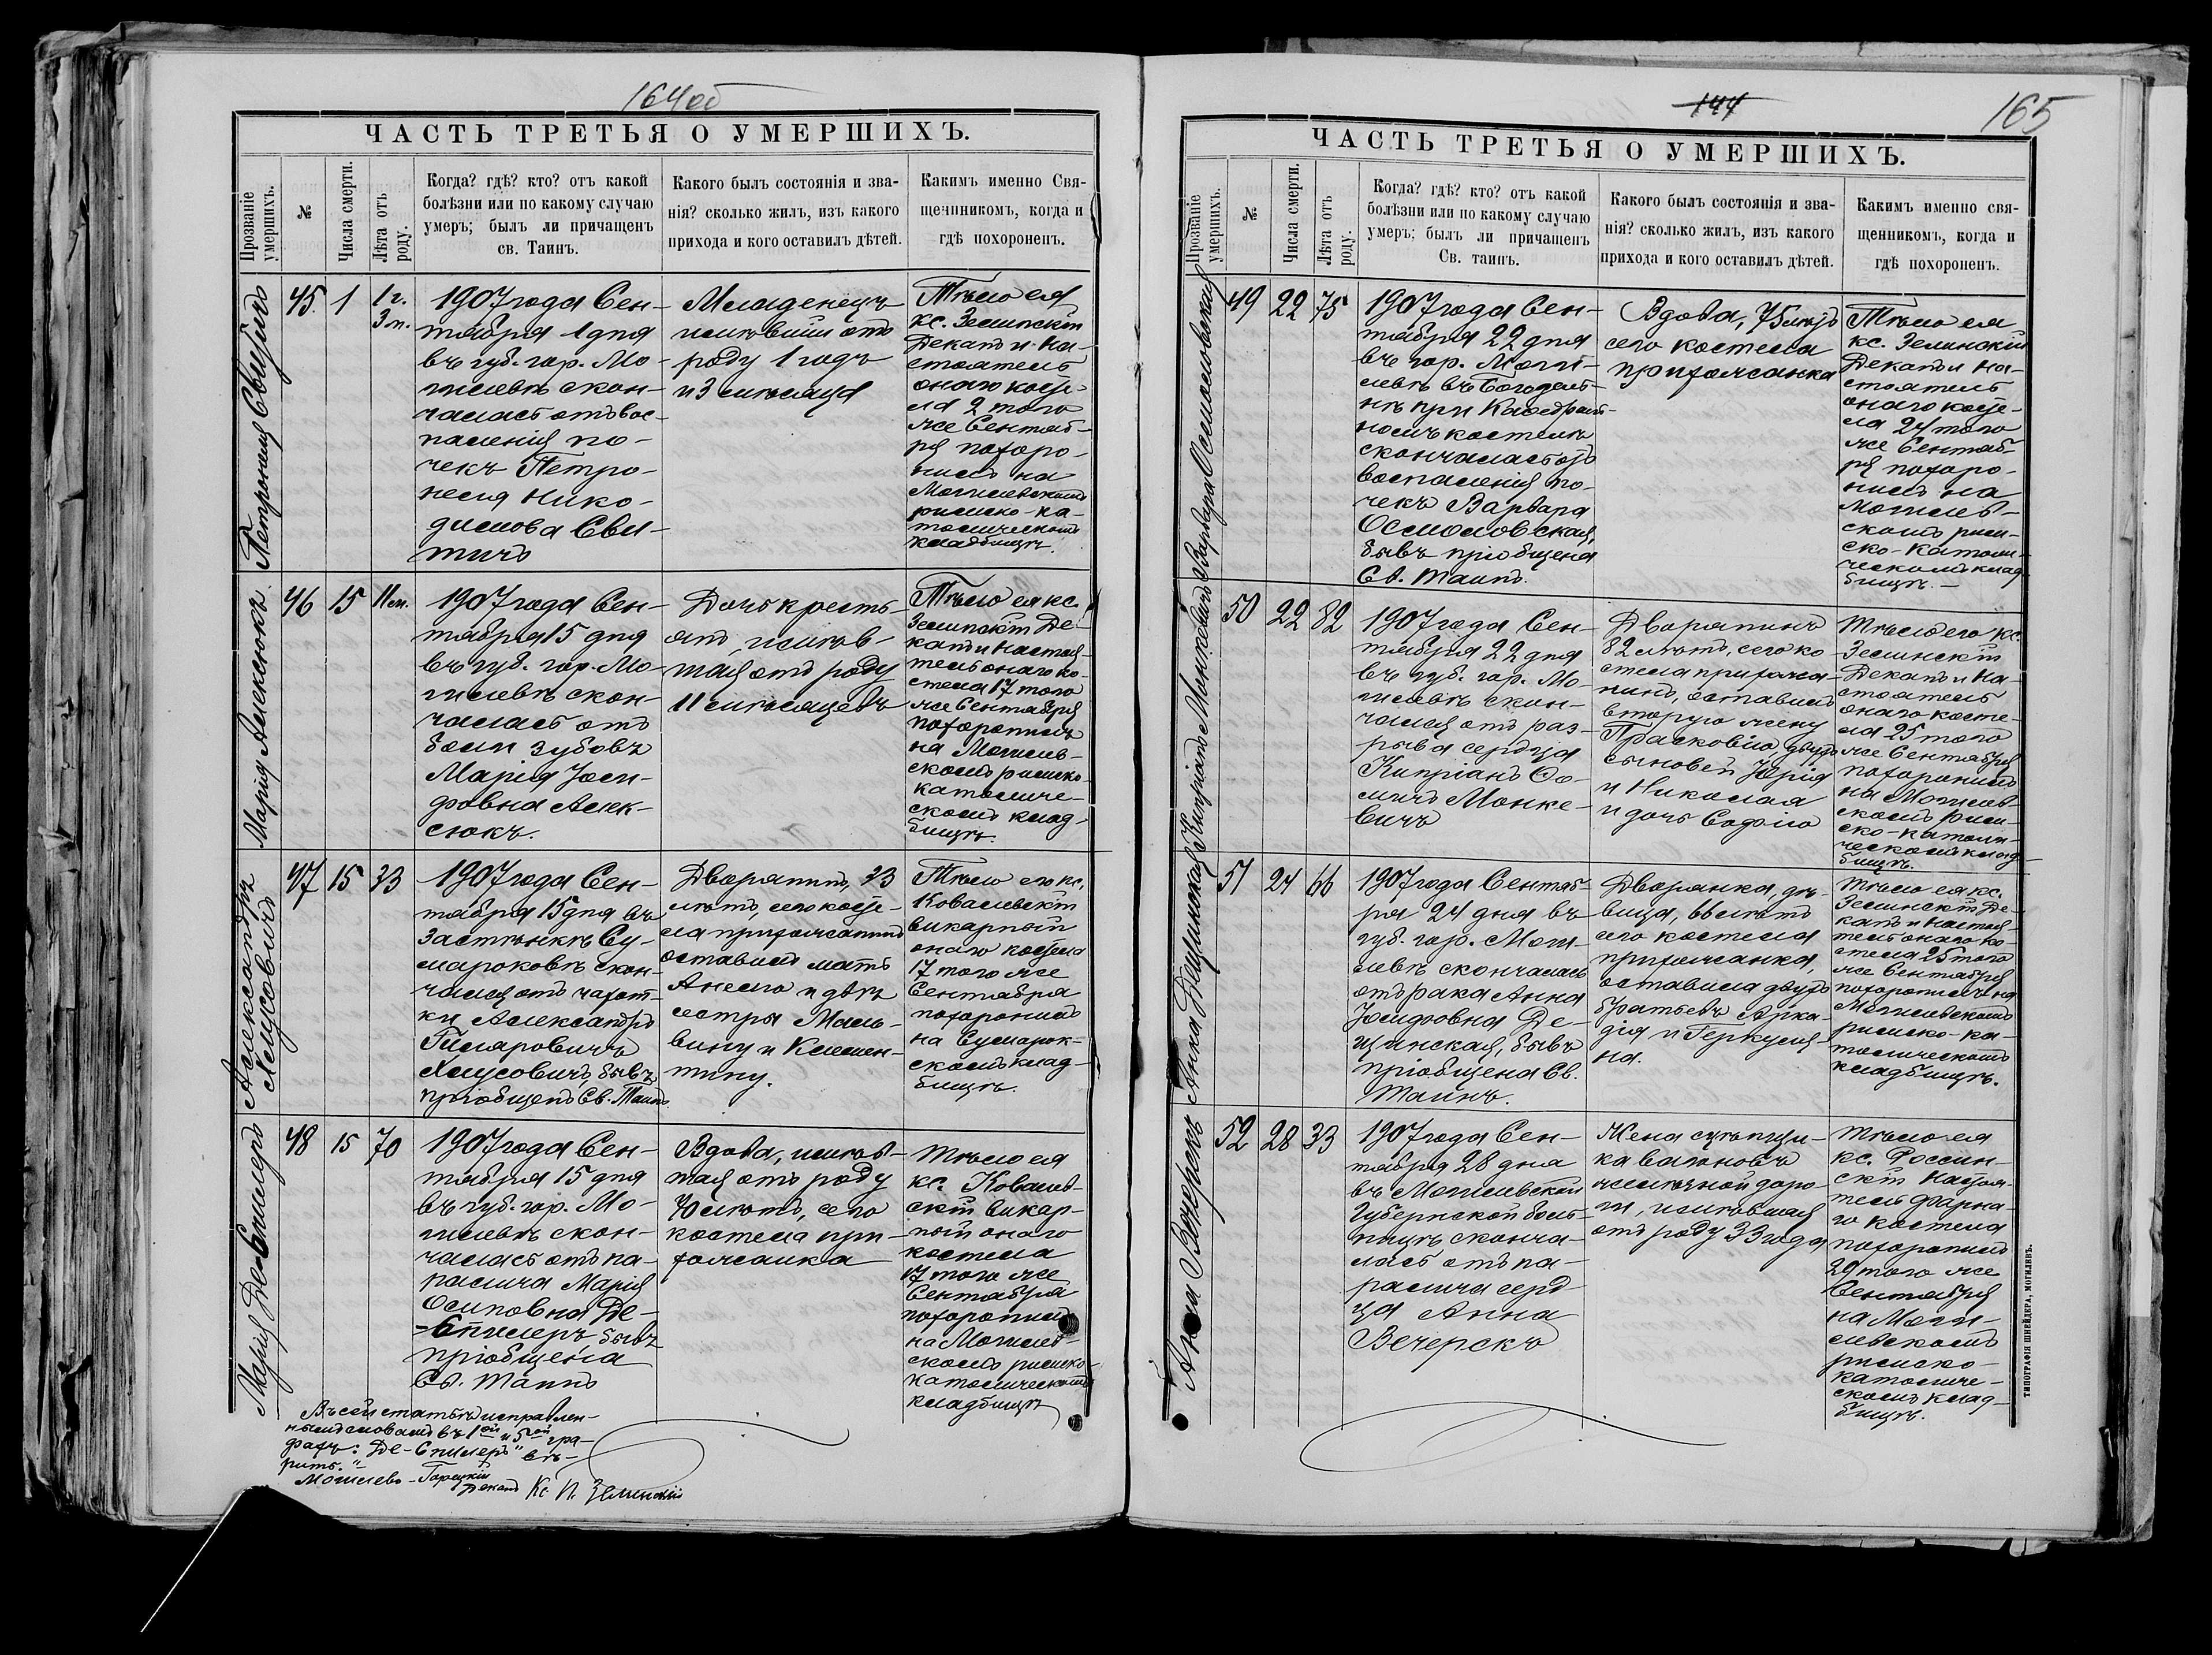 164об
ЧАСТЬ ТРЕТЬЯ О УМЕРШИХЪ.
Прозваніе умершихъ.
№
Числа смерти.
Лѣта отъ роду.
Когда? гдѣ? кто? отъ какой
болѣзни или по какому случаю
умеръ; былъ ли причащенъ
св. Таинъ.
Какого былъ состоянія и зва-
нія? сколько жилъ, изъ какого
прихода и кого оставилъ дѣтей.
Какимъ именно Свя-
щенникомъ, когда и
гдѣ похороненъ.
Петронеля Свитичъ
45.
1
1 г.
3 м.
1907 года Сен-
тября 1 дня
въ губ. гор. Мо-
гилевѣ скон-
чалась отъ вос-
паленія по-
чекъ Петро-
неля Нико-
димова Сви-
тичъ
Младенецъ
имѣвшій отъ
роду 1 годъ
и 3 мѣсяца
Тѣло ея
кс. Зелинскій
Деканъ и На-
стоятель
онаго косте-
ла 2 того
же Сентяб-
ря похоро-
нилъ на
Могилевскомъ
римско-ка-
толическомъ
кладбищѣ.
Марія Алексюкъ
46
15
11 м.
1907 года Сен-
тября 15 дня
въ губ. гор. Мо-
гилевѣ скон-
чалась отъ
боли зубовъ
Марія Іоси-
фовна Алек-
сюкъ.
Дочь кресть-
янъ, имѣв-
шая отъ роду
11 мѣсяцевъ
Тѣло ея кс.
Зелинскій Де-
канъ и Настоя-
тель онаго ко-
стела 17 того
же Сентября
похоронилъ
на Могилев-
скомъ римско-
католиче-
скомъ клад-
бищѣ.
Александръ
Хлусовичъ
47
15
33
1907 года Сен-
тября 15 дня въ
застѣнкѣ Су-
мароковѣ скон-
чался отъ чахот-
ки Александръ
Гиляровичъ
Хлусовичъ, бывъ
пріобщенъ Св. Таинъ.
Дворянинъ, 33
лѣтъ, сего косте-
ла прихожанинъ
оставилъ мать
Анелю и двѣ
сестры Маль-
вину и Клемен-
тину.
Тѣло его кс.
Ковалевскій
викарный
онаго костела
17 того же
Сентября
похоронилъ
на Сумарок-
скомъ клад-
бищѣ.
Марія Де-Спиллеръ
48
15
70
1907 года Сен-
тября 15 дня
въ губ. гор. Мо-
гилевѣ скон-
чалась отъ па-
ралича Марія
Осиповна Де-
-Спиллеръ бывъ
пріобщена
Св. Таинъ
Вдова, имѣв-
шая отъ роду
70 лѣтъ, сего
костела при-
хожанка
Тѣло ея
кс. Ковалев-
скій викар-
ный онаго
костела
17 того же
Сентября
похоронилъ
на Могилев-
скомъ римско-
католическомъ
кладбищѣ
Въ сей статьѣ исправлен-
нымъ словамъ въ 1ой и 5той гра-
фахъ: "Де-Спиллеръ" вѣ-
рить."
Могилево-Горецкій
Деканъ Кс. П. Зелинскій
144
165
ЧАСТЬ ТРЕТЬЯ О УМЕРШИХЪ.
Прозваніе умершихъ.
№
Числа смерти.
Лѣта отъ роду.
Когда? гдѣ? кто? отъ какой
болѣзни или по какому случаю
умеръ; былъ ли причащенъ
Св. таинъ.
Какого былъ состоянія и зва-
нія? сколько жилъ, изъ какого
прихода и кого оставилъ дѣтей.
Какимъ именно свя-
щенникомъ, когда и
гдѣ похороненъ.
Варвара Осмоловская
49
22
75
1907 года Сен-
тября 22 дня
въ гор. Моги-
левѣ въ Богодель-
нѣ при Каѳедраль-
номъ костелѣ
скончалась отъ
воспаленія по-
чекъ Варвара
Осмоловская,
бывъ пріобщена
Св. Таинъ.
Вдова, 75 лѣтъ
сего костела
прихожанка
Тѣло ея
кс. Зелинскій
Деканъ и На-
стоятель
онаго косте-
ла 24 того
же Сентяб-
ря похоро-
нилъ на
Могилев-
скомъ рим-
ско-католи-
ческомъ клад-
бищѣ.
Кипріанъ Монкевичъ
50
22
82
1907 года Сен-
тября 22 дня
въ губ. гор. Мо-
гилевѣ скон-
чался отъ раз-
рыва сердца
Кипріанъ Ѳо-
мичъ Монке-
вичъ
Дворянинъ
82 лѣтъ, сего ко-
стела прихожа-
нинъ, оставилъ
вторую жену
Прасковію двухъ
сыновей Юрія
и Николая
и дочь Софію
Тѣло его кс.
Зелинскій
Деканъ и На-
стоятель
онаго косте-
ла 25 того
же Сентября
похоронилъ
на Могилев-
скомъ рим-
ско-католи-
ческомъ клад-
бищѣ.
Анна Дещинская
51
24
66
1907 года Сентяб-
ря 24 дня въ
губ. гор. Моги-
левѣ скончалась
отъ рака Анна
Іосифовна Де-
щинская, бывъ
пріобщена Св.
Таинъ.
Дворянка, дѣ-
вица, 66 лѣтъ
сего костела
прихожанка,
оставила двухъ
братьевъ Арка-
дія и Геркуля-
на.
Тѣло ея кс.
Зелинскій Де-
канъ и Настоя-
тель онаго ко-
стела 25 того
же Сентября
похоронилъ на
Могилевскомъ
римско-ка-
толическомъ
кладбищѣ.
Анна Вечерскъ
52
28
33
1907 года Сен-
тября 28 дня
въ Могилевской
Губернской боль-
ницѣ сконча-
лась отъ па-
ралича серд-
ца Анна
Вечерскъ
Жена сцѣпщи-
ка вагоновъ
желѣзной доро-
ги, имѣвшая
отъ роду 33 года
Тѣло ея
кс. Фоссин-
скій Настоя-
тель фарна-
го костела
похоронилъ
29 того же
Сентября
на Моги-
левскомъ
римско-
католиче-
скомъ клад-
бищѣ.
ТИПОГРАФІЯ ШНЕЙДЕРА, МОГИЛЕВЪ.